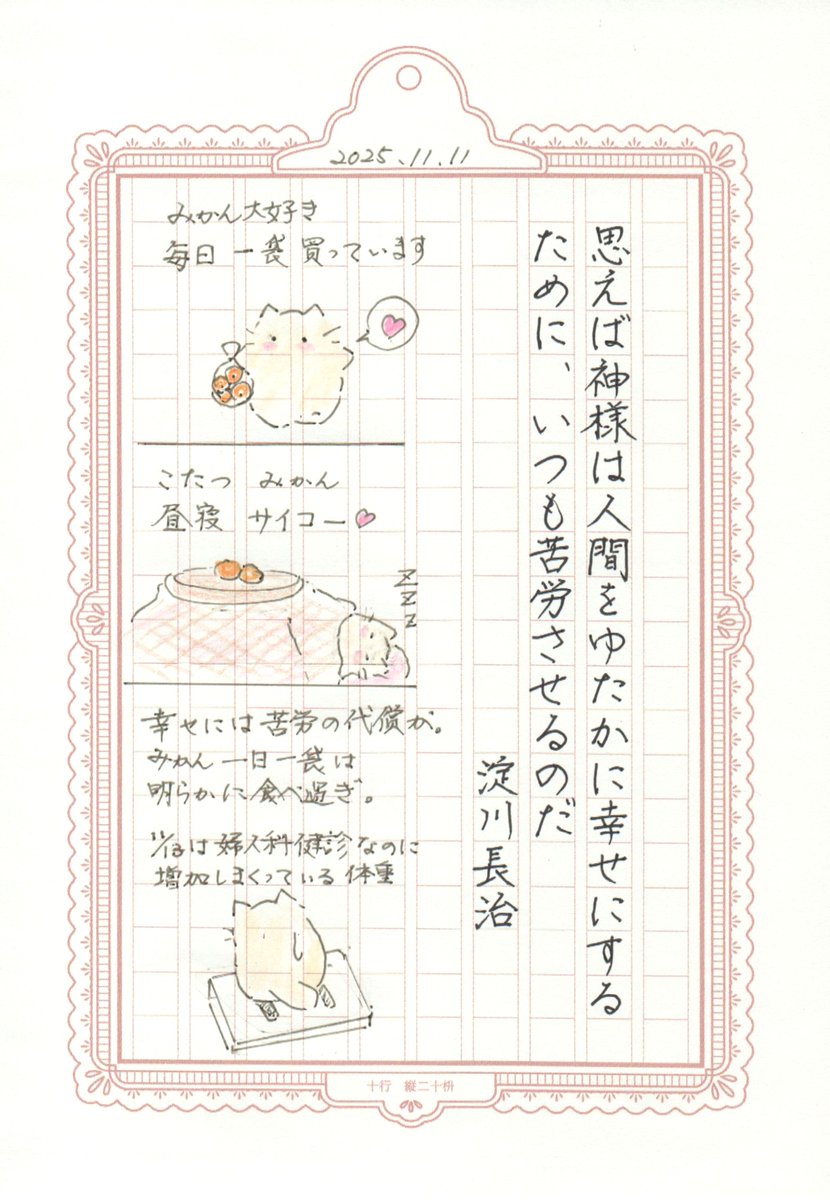 2025.11.11
思えば神様は人間をゆたかに幸せにする
ために、いつも苦労させるのだ
淀川長治
みかん大好き
毎日一袋買っています
こたつ みかん
昼寝 サイコー
z
z
z
幸せには苦労の代償が。
みかん一日一袋は
明らかに食べ過ぎ。
11/13は婦人科健診なのに
増加しまくっている体重
十行 縦二十枡